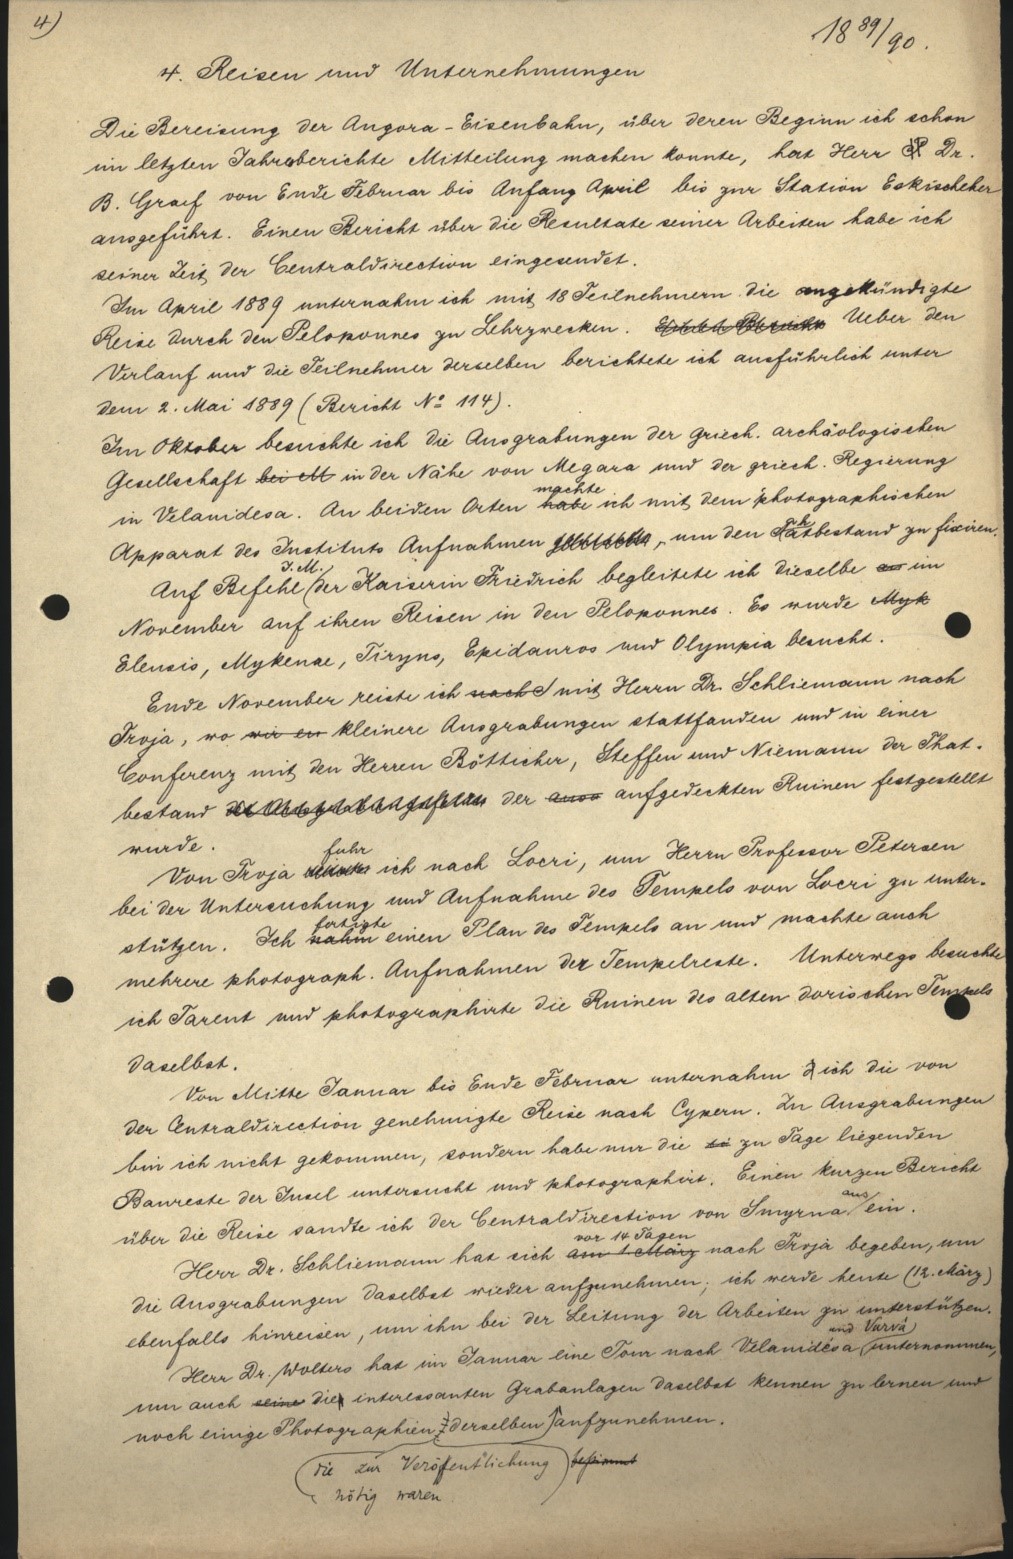 4)
18 89/90.
4. Reisen und Unternehmungen
Die Bereisung der Angora-Eisenbahn, über deren Beginn ich schon
im letzten Jahresberichte Mitteilung machen konnte, hat Herr Dr.
B. Graef von Ende Februar bis Anfang April bis zur Station Eskischeher
ausgeführt. Einen Bericht über die Resultate seiner Arbeiten habe ich
seiner Zeit der Centraldirection eingesendet.
Im April 1889 unternahm ich mit 18 Teilnehmern die angekündigte
Reise durch den Peloponnes zu Lehrzwecken. Ueber den
Verlauf und die Teilnehmer derselben berichtete ich ausführlich unter
dem 2. Mai 1889 (Bericht No 114).
Im Oktober besuchte ich die Ausgrabungen der griech. archäologischen
Gesellschaft bei M in der Nähe von Megara und der griech. Regierung
machte
in Velanidesa. An beiden Orten habe ich mit dem photographischen
Apparat des Instituts Aufnahmen, um den Thatbestand zu fixiren.
I. M.
Auf Befehl der Kaiserin Friedrich begleitete ich dieselbe an im
November auf ihren Reisen in den Peloponnes. Es wurde Myk
Eleusis, Mykenae, Tiryns, Epidauros und Olympia besucht.
Ende November reiste ich nach S mit Herrn Dr. Schliemann nach
Troja, wo wir en kleinere Ausgrabungen stattfanden und in einer
Conferenz mit den Herren Bötticher, Steffen und Niemann der That-
bestand der ausa aufgedeckten Ruinen festgestellt
wurde.
fuhr
Von Troja ich nach Locri, um Herrn Professor Petersen
bei der Untersuchung und Aufnahme des Tempels von Locri zu unter-
fertigte
stützen. Ich nahm einen Plan des Tempels an und machte auch
mehrere photograph. Aufnahmen der Tempelreste. Unterwegs besuchte
ich Tarent und photographirte die Ruinen des alten dorischen Tempels
daselbst.
Von Mitte Januar bis Ende Februar unternahm ich die von
der Centraldirection genehmigte Reise nach Cypern. Zu Ausgrabungen
bin ich nicht gekommen, sondern habe nur die zu Tage liegenden
Baureste der Insel untersucht und photographirt. Einen kurzen Bericht
aus
über die Reise sandte ich der Centraldirection von Smyrna ein.
vor 14 Tagen
Herr Dr. Schliemann hat sich am 1 März nach Troja begeben, um
die Ausgrabungen daselbst wieder aufzunehmen; ich werde heute (12. März)
ebenfalls hinreisen, um ihn bei der Leitung der Arbeiten zu unterstützen.
und Vurvá
Herr Dr. Wolters hat im Januar eine Tour nach Velanidésa unternommen,
um auch seine die interessanten Grabanlagen daselbst kennen zu lernen und
noch einige Photographien derselben aufzunehmen.
die zur Veröffentlichung bestimmt
nötig waren